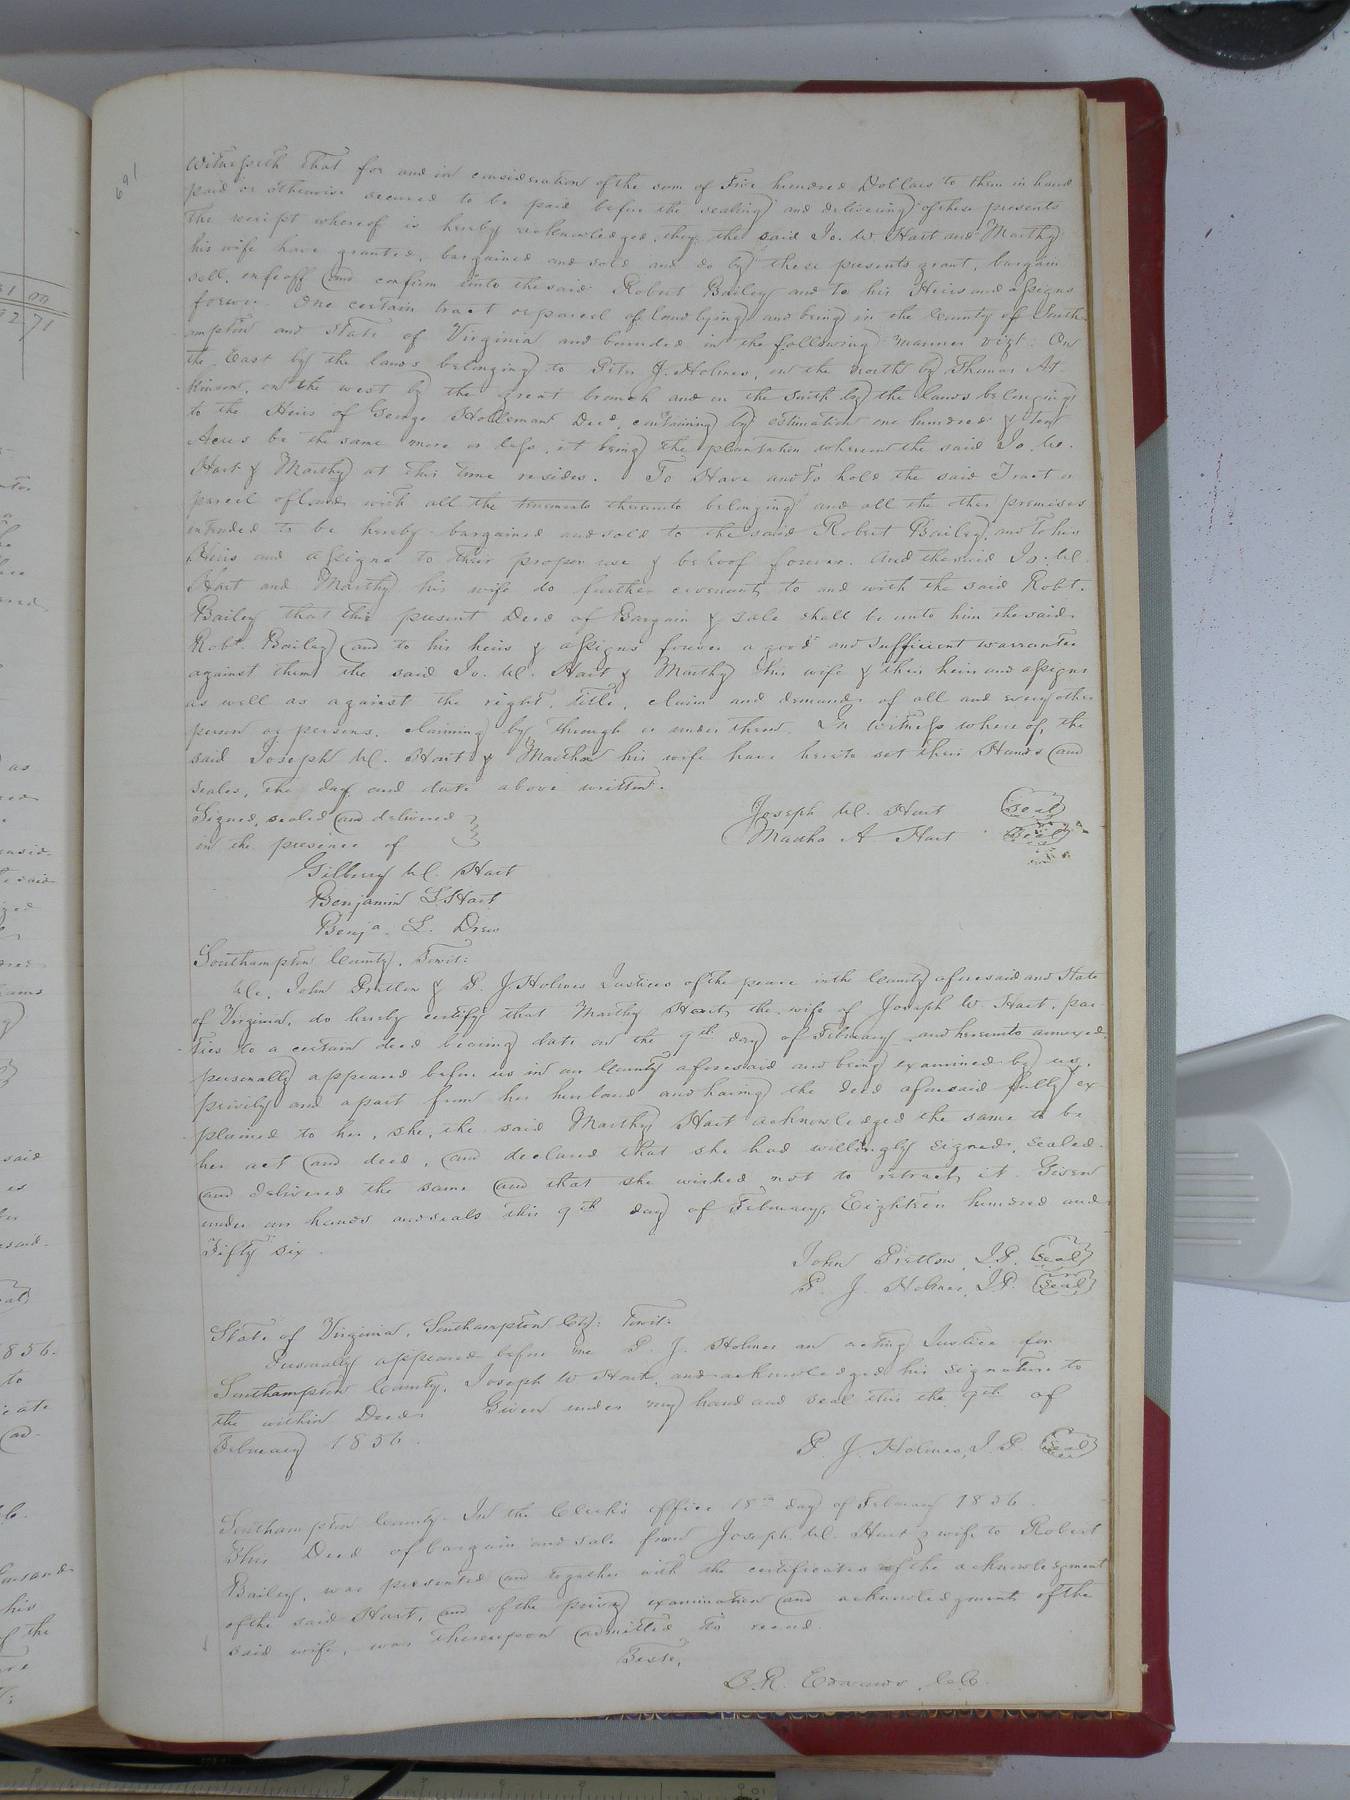 691
Witnesseth that for and in consideration of the sum of Five hundred Dollars to them in hand
paid or otherwise secured to be paid before the sealing and delivering of these presents
the receipt whereof is hereby acknowledged, they the said Jo. W. Hart and Marthy
his wife have granted, bargained and sold and do by these presents grant, bargain
sell, enfeoff and confirm unto the said Robert Bailey and to his Heirs and assigns
forever One certain tract or parcel of land lying and being in the County of South-
ampton and State of Virginia and bounded in the following manner vizt: On
the East by the lands belonging to Peter J. Holmes, on the north by Thomas At-
kinson, on the west by the great branch and on the South by the lands belonging
to the Heirs of George Holleman Decd, containing by estimation one hundred & ten
Acres be the same more or less, it being the plantation whereon the said Jo. W.
Hart & Marthy at this time resides. To Have and to hold the said Tract or
parcel of land with all the tenements thereunto belonging and all the other premises
intended to be hereby bargained and sold to the said Robert Bailey, and to his
Heirs and assigns to their proper use & behoof forever. And the said Jo. W.
Hart and Marthy his wife do further covenant to and with the said Robt.
Bailey that this present Deed of Bargain & sale shall be unto him the said
Robt. Bailey and to his heirs & assigns forever a good and sufficient warrantee
against them the said Jo. W. Hart & Marthy his wife & their heirs and assigns
as well as against the right, title, claim and demands of all and every other
person or persons, claiming by, through or under them. In witness whereof, the
said Joseph W. Hart & Martha his wife have hereto set their Hands and
seales, the day and date above written.
Signed, sealed and delivered
in the presence of
Joseph W. Hart Seal
Martha A Hart Seal
Gilbury W. Hart
Benjamin L. Hart
Benja. L. Drew
Southampton County, Towit:
We, John Pretlow & P. J. Holmes Justices of the peace in the County aforesaid and State
of Virginia, do hereby certify that Marthy Hart, the wife of Joseph W. Hart, par-
ties to a certain deed bearing date on the 9th day of February and hereunto annexed
personally appeared before us in our County aforesaid and being examined by us,
privily and apart from her husband and having the deed aforesaid fully ex
plained to her, she, the said Marthy Hart acknowledged the same to be
her act and deed, and declared that she had willingly signed, sealed
and delivered the same and that she wished not to retract it. Given
under our hands and seals this 9th day of February, Eighteen hundred and
Fifty six.
John Pretlow, J.P. Seal
P. J. Holmes, J.P. Seal
State of Virginia, Southampton Cty: Towit:
Personally appeared before me P. J. Holmes an acting Justice for
Southampton County, Joseph W Hart, and acknowledged his signature to
the within Deed Given under my hand and seal this the 9th of
February 1856.
P. J. Holmes, J.P. Seal
Southampton County. In the Clerk's office 18th day of February 1856.
This Deed of bargain and sale from Joseph W. Hart & wife to Robert
Bailey, was presented and together with the certificates of the acknowledgment
of the said Hart, and of the privy examination and acknowledgment of the
said wife, was thereupon admitted to record.
Teste,
L. R. Edwards, C.C.